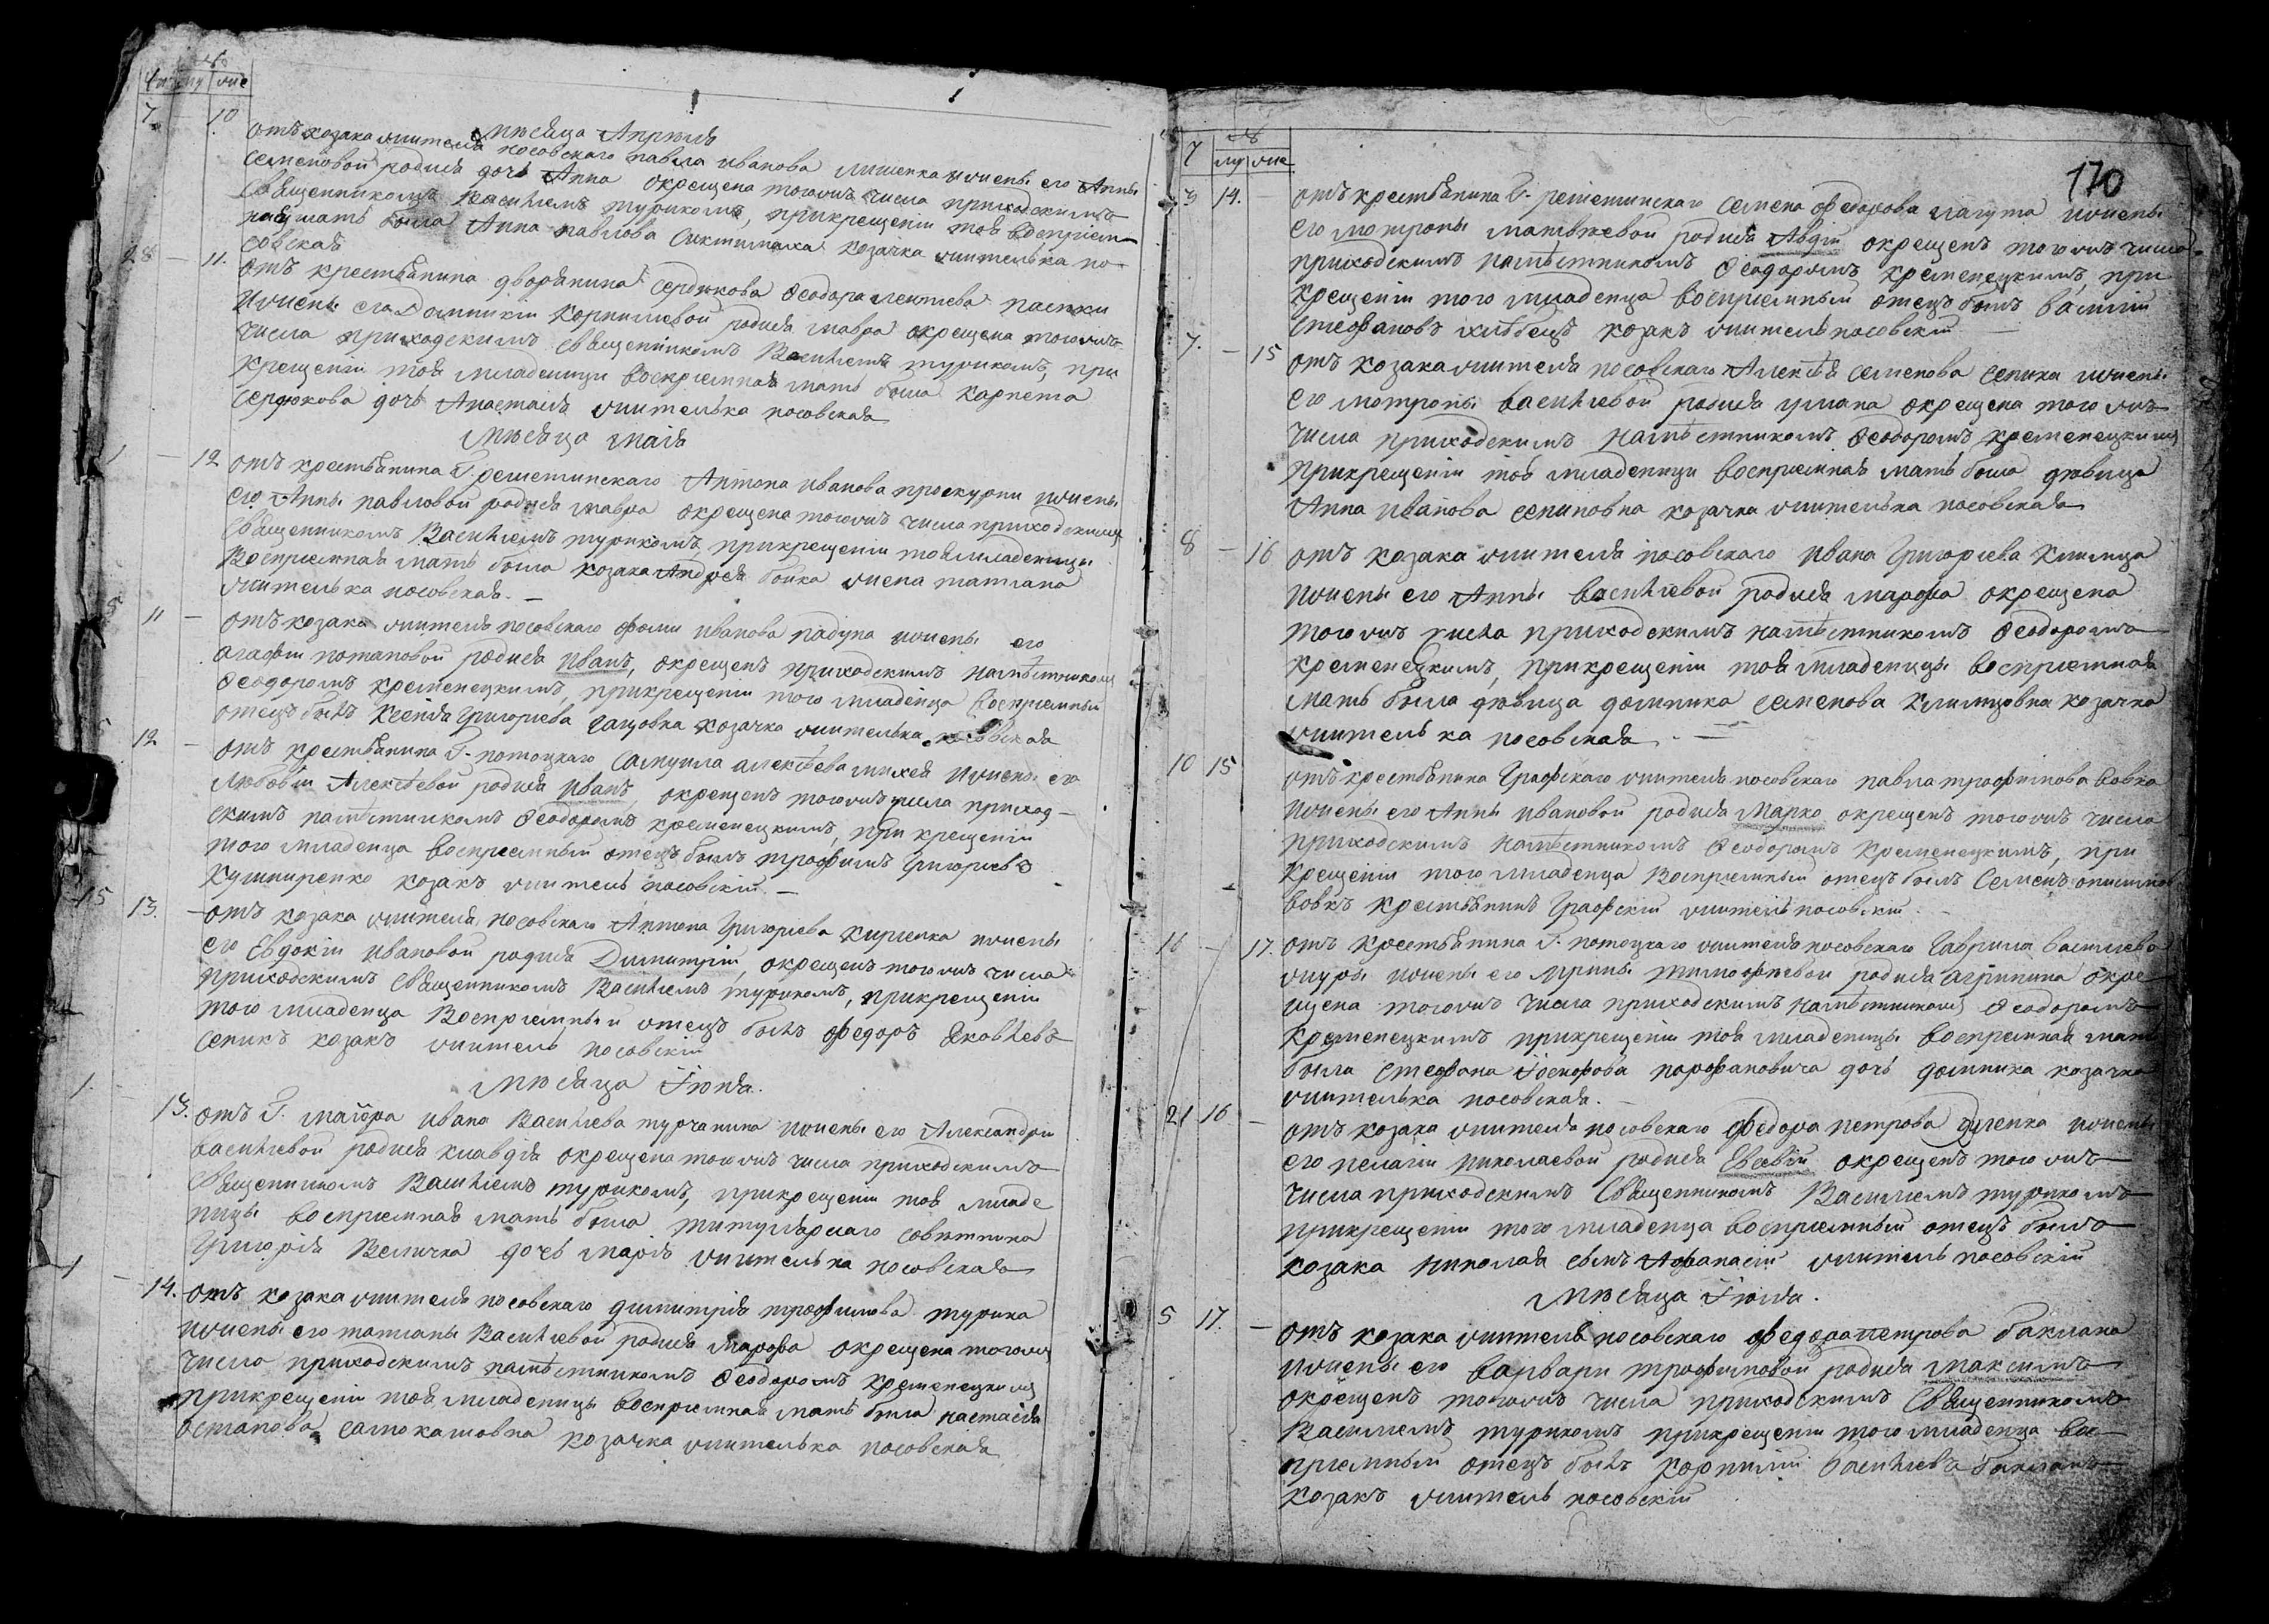 число му жс
Мѣсяца Апрѣля
7 10 отъ козака жителя носовскаго павла иванова лишенка ижены его Анны
семеновой родися дочь Анна окрещена тогожъ числа приходскимъ
священникомъ Василіемъ туриком, прикрещеніи тоя воспріем
ная мать была Анна павлова козачка жителька но
совская
28 11. отъ крестьянина дворянина сердюкова Феодора леонтева пасѣки
ижены его Домникіи Корниліевой родися мавра окрещена тогожъ
числа приходскимъ священникомъ Василіемъ турикомъ, при
крещеніи тоя младеницы воспріемная мать была карпета
сердюкова дочь Анастасія жителька носовская
Мѣсяца маія
1 12 отъ крестьянина Г. решетинскаго Антона иванова проскурни ижены
его Анны павловой родися мавра окрещена тогожъ числа приходскимъ
священникомъ Василіемъ турикомъ, прикрещеніи тоя младеницы
Воспріемная мать была козака Андрея бойка жена татіана
жителька носовская.
5 11 отъ козака жителя носовскаго фомы иванова падуна ижены его
агафіи потаповой родися иванъ, окрещенъ приходскимъ намѣстникомъ
Феодоромъ кременецкимъ, прикрещеніи того младенца воспріемный
отецъ былъ Ксенія григоріева сацовка козачка жителька носовская
12 отъ крестьянина Г. потоцкаго самуила алексѣева михея ижены его
любовіи Алексѣевой родися иванъ, окрещенъ тогожъ числа приход
скимъ намѣстникомъ Феодоромъ кременецкимъ, при крещеніи
того младенца воспріемный отецъ былъ трофимъ григоріевъ
кушниренко козакъ житель носовскій
15 13. отъ козака жителя носовскаго Антона григоріева кириенка ижены
его Евдокіи ивановой родися Димитрій, окрещенъ тогожъ числа
приходскимъ священникомъ Василіемъ турикомъ, прикрещеніи
того младенца Воспріемный отецъ былъ федоръ яковлевъ
сепикъ козакъ житель носовскій
Мѣсяца Іюня.
1. 13. отъ Г. маіора ивана Василіева турчанина ижены его Александры
василіевой родися клавдія окрещена тогожъ числа приходскимъ
священникомъ Василіемъ турикомъ, прикрещеніи тоя младе
ницы воспріемная мать была титулярнаго совѣтника
григорія Величка дочь марія жителька носовская
1 14. отъ козака жителя носовскаго димитрія трофимова турика
ижены его татіаны Василіевой родися марфа окрещена тогожъ
числа приходскимъ намѣстникомъ Феодоромъ кременецкимъ
прикрещеніи тоя младеницы воспріемная мать была настасія
остапова самокатовна козачка жителька носовская
170
число му жс
3 14. отъ крестьянина Г. решетинскаго семена федорова лагута ижены
его мотроны матвѣевой родися Авдій окрещенъ тогожъ числа
приходскимъ намѣстникомъ Феодоромъ кременецкимъ, при
крещеніи того младенца воспріемный отецъ былъ василій
стефановъ козакъ житель носовскій
7. 15 отъ козака жителя носовскаго Алексѣя семенова сепика ижены
его мотроны василіевой родися уліана окрещена тогожъ
числа приходскимъ намѣстникомъ Феодоромъ кременецкимъ
прикрещеніи тоя младеницы воспріемная мать была дѣвица
Анна иванова сепиковна козачка жителька носовская
8 16 отъ козака жителя носовскаго ивана григоріева климца
ижены его Анны василіевой родися марфа окрещена
тогожъ числа приходскимъ намѣстникомъ Феодоромъ
кременецкимъ, прикрещеніи тоя младеницы воспріемная
мать была дѣвица домника семенова климцовна козачка
жителька носовская
10 15 отъ крестьянина графскаго жителя носовскаго павла трофимова вовка
ижены его Анны ивановой родися Марко окрещенъ тогожъ числа
приходскимъ намѣстникомъ Феодоромъ кременецкимъ, при
крещеніи того младенца воспріемный отецъ былъ Семенъ
вовкъ крестьянинъ графскій житель носовскій
16 17. отъ крестьянина Г. потоцкаго жителя носовскаго гаврила василіева
журы ижены его Ирины тимофѣевой родися агрипина окре
щена тогожъ числа приходскимъ намѣстникомъ Феодоромъ
кременецкимъ прикрещеніи тоя младеницы воспріемная мать
была стефана іосифова парфановича дочь домника козачка
жителька носовская.
21 16 отъ козака жителя носовскаго федора петрова ижены
его пелагіи николаевой родися Евсевій окрещенъ тогожъ
числа приходскимъ священникомъ Василіемъ турикомъ
прикрещеніи того младенца воспріемный отецъ былъ
козака николая сынъ Афанасій житель носовскій
Мѣсяца Іюля.
5 17. отъ козака жителя носовскаго федора петрова баклана
ижены его варвары трофимовой родися максимъ
окрещенъ тогожъ числа приходскимъ священникомъ
Василіемъ турикомъ прикрещеніи того младенца вос
пріемный отецъ былъ корнилій василіевъ бакланъ
козакъ житель носовскій